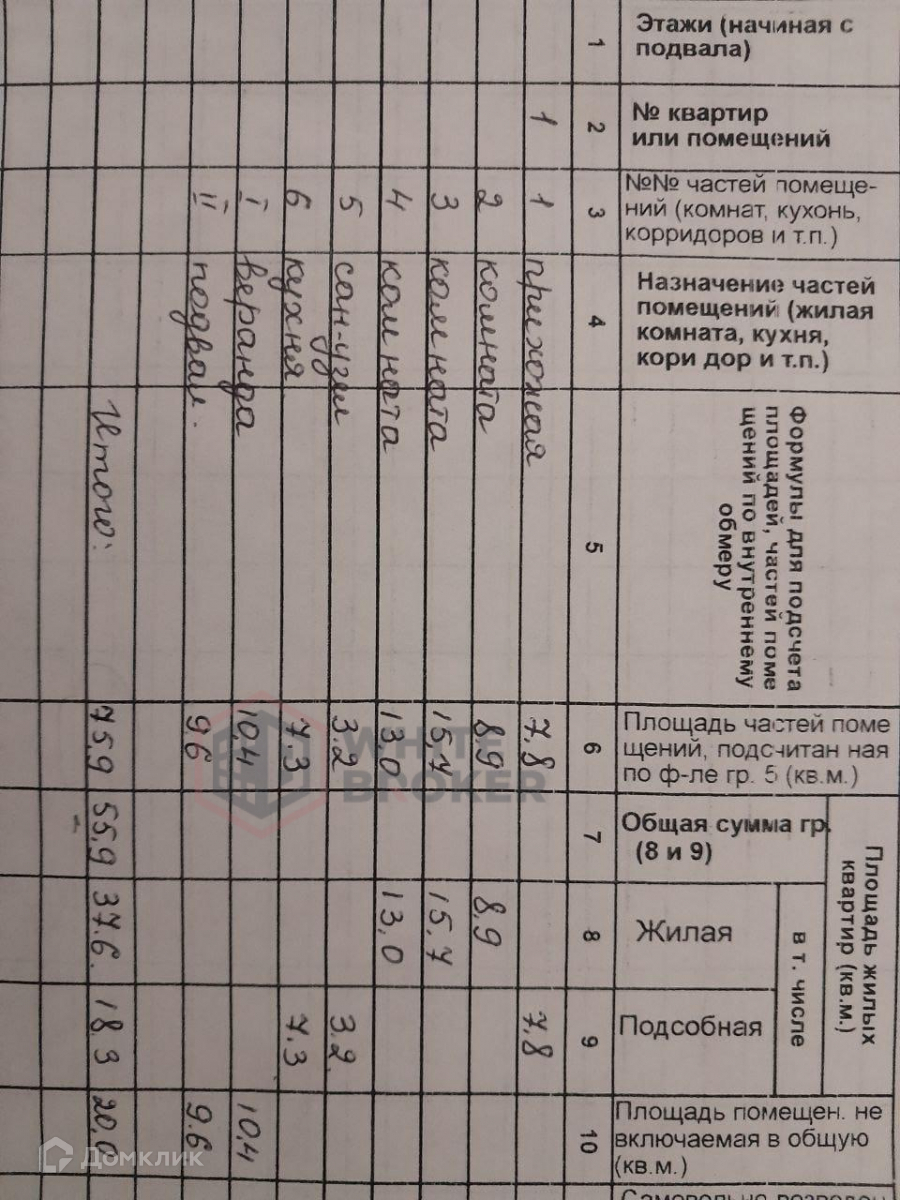 Этажи (начиная с
подвала)
1
№ квартир
или помещений
2
№№ частей помеще-
ний (комнат, кухонь,
корридоров и т.п.)
3
Назначение частей
помещений (жилая
комната, кухня,
кори дор и т.п.)
4
Формулы для подсчета
площадей, частей поме
щений по внутреннему
обмеру
5
Площадь частей поме
щений, подсчитан ная
по ф-ле гр. 5 (кв.м.)
6
Площадь жилых
квартир (кв.м.)
Общая сумма гр.
(8 и 9)
7
в т. числе
Жилая
8
Подсобная
9
Площадь помещен. не
включаемая в общую
(кв.м.)
10
1 1 прихожая 7,8 7,8
2 комната 8,9 8,9
3 комната 15,7 15,7
4 комната 13,0 13,0
5 сан-узел 3.2 3.2
6 кухня 7.3 7.3
I веранда 10,4 10,4
II подвал. 9.6 9.6
Итого: 75,9 55,9 37.6. 18,3 20,0
WHITE
BROKER
Домклик